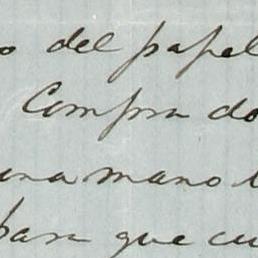 o del papel
Compra do
una mano
para que cu